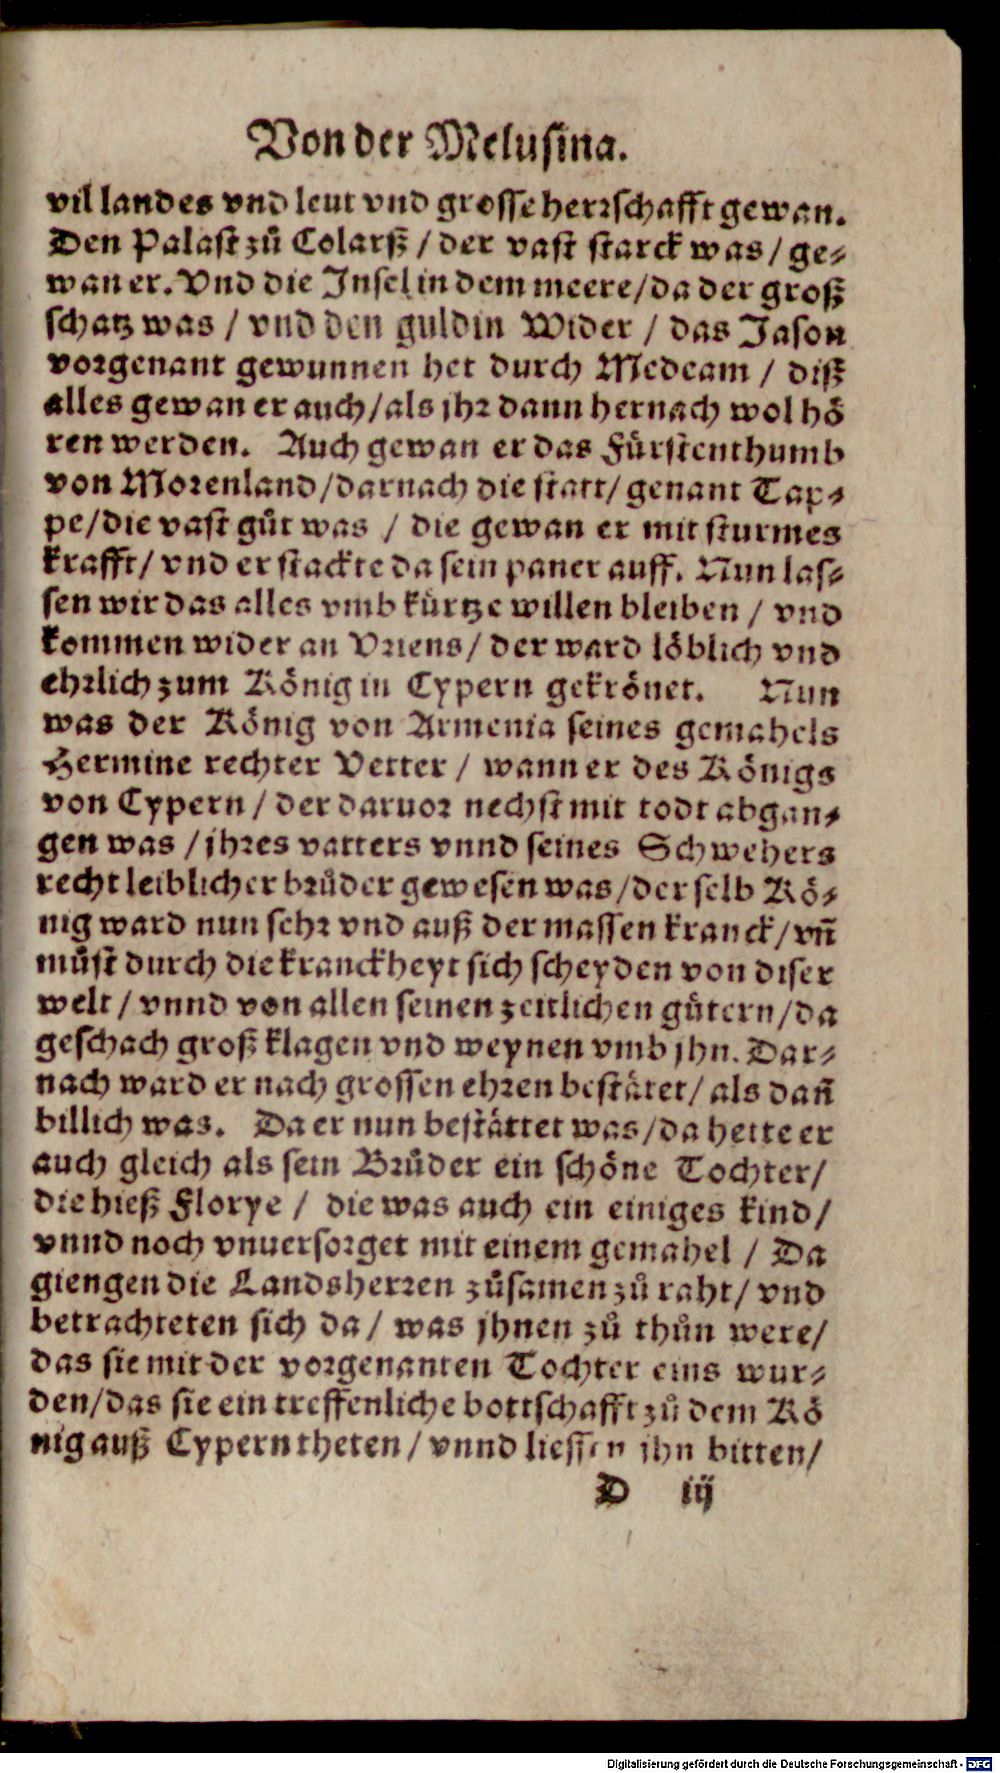 Von der Melusina.
vil landes vnd leut vnd grosse herrschafft gewan.
Den Palast zů Colarß / der vast starck was / ge-
wan er. Vnd die Insel in dem meere / da der groß
schatz was / vnd den guldin Wider / das Jason
vorgenant gewunnen het durch Medeam / diß
alles gewan er auch / als jhr dann hernach wol hö
ren werden. Auch gewan er das Fürstenthumb
von Morenland / darnach die statt / genant Tap-
pe / die vast gůt was / die gewan er mit sturmes
krafft / vnd er stackte da sein paner auff. Nun las-
sen wir das alles vmb kürtze willen bleiben / vnd
kommen wider an Vriens / der ward löblich vnd
ehrlich zum König in Cypern gekrönet. Nun
was der König von Armenia seines gemahels
Hermine rechter Vetter / wann er des Königs
von Cypern / der daruor nechst mit todt abgan-
gen was / jhres vatters vnnd seines Schwehers
recht leiblicher brůder gewesen was / der selb Kö-
nig ward nun sehr vnd auß der massen kranck / vñ
můst durch die kranckheyt sich scheyden von diser
welt / vnnd von allen seinen zeitlichen gůtern / da
geschach groß klagen vnd weynen vmb jhn. Dar-
nach ward er nach grossen ehren bestätet / als dañ
billich was. Da er nun bestättet was / da hette er
auch gleich als sein Brůder ein schöne Tochter /
die hieß Florye / die was auch ein einiges kind /
vnnd noch vnuersorget mit einem gemahel / Da
giengen die Landsherren zůsamen zů raht / vnd
betrachteten sich da / was jhnen zů thůn were /
das sie mit der vorgenanten Tochter eins wur-
den / das sie ein treffenliche bottschafft zů dem Kö
nig auß Cypern theten / vnnd liessen jhn bitten /
D iij
Digitalisierung gefördert durch die Deutsche Forschungsgemeinschaft - DFG